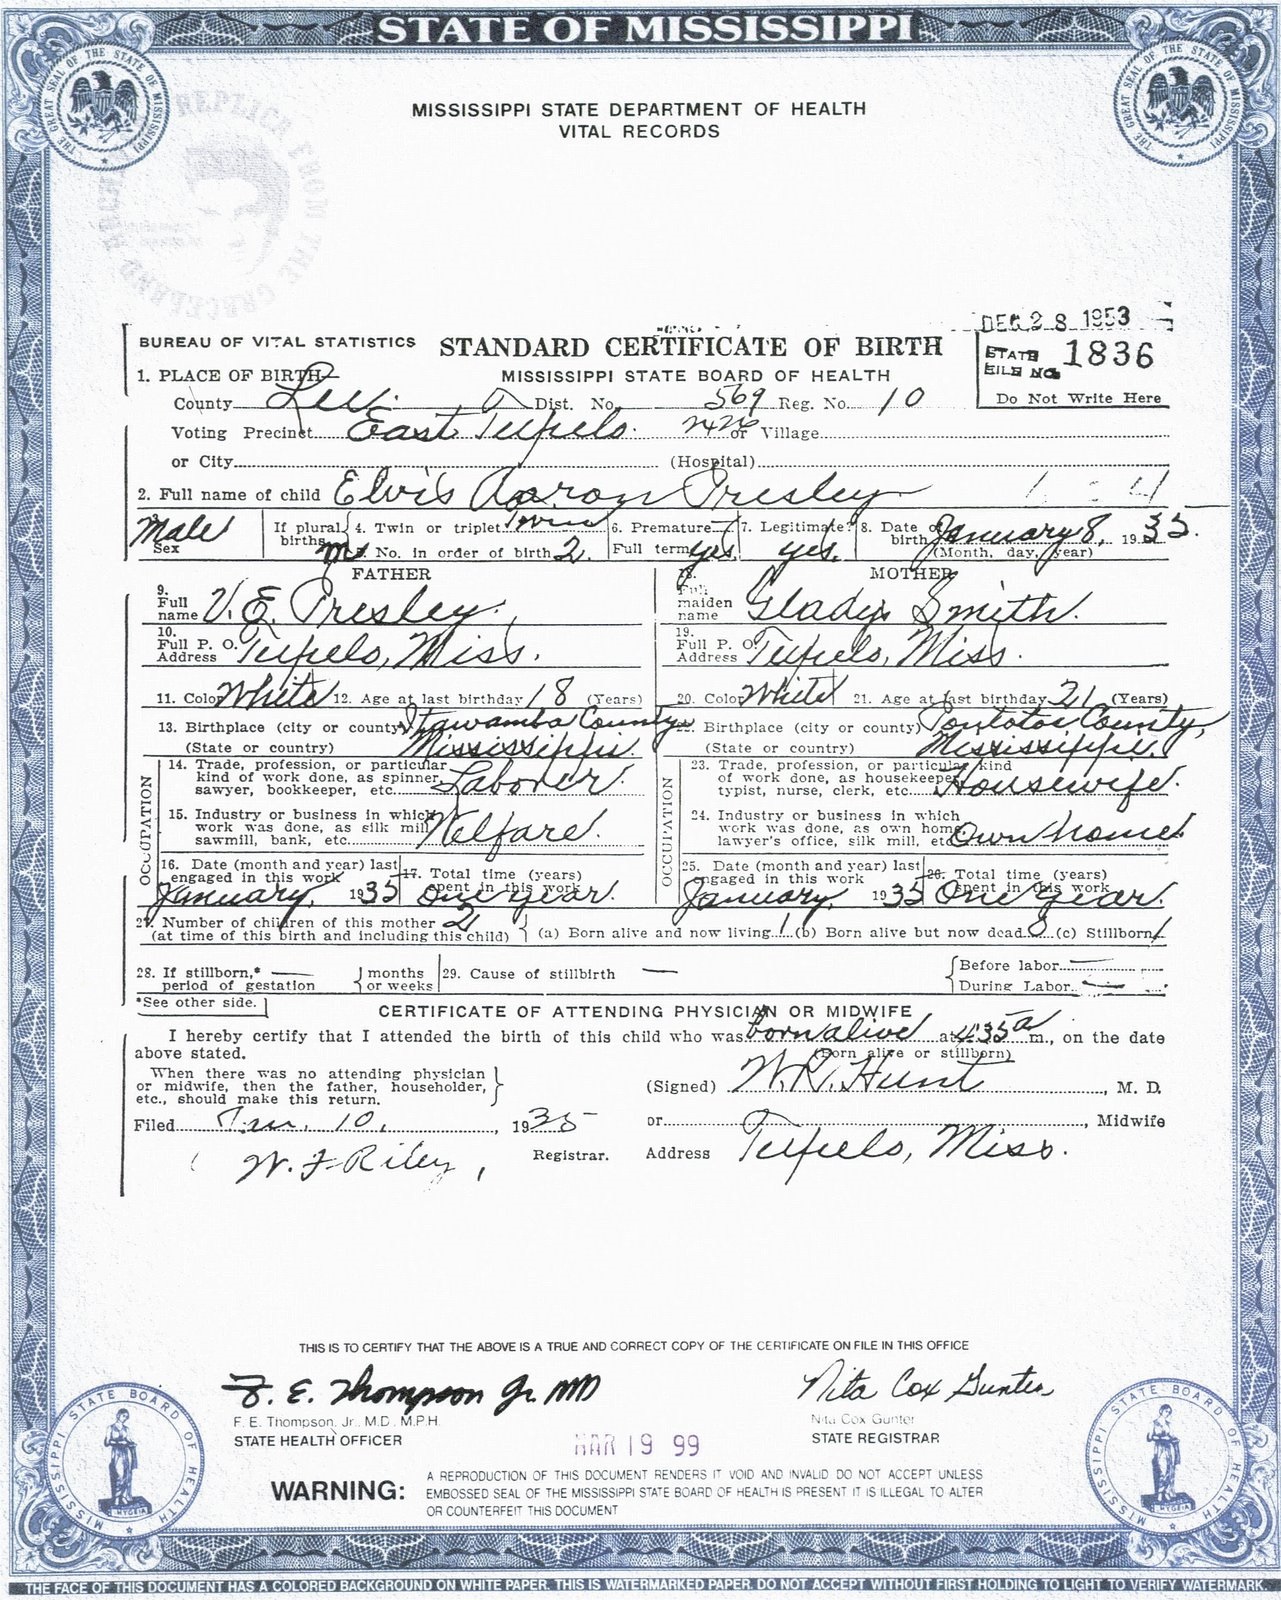 STATE OF MISSISSIPPI
THE GREAT SEAL OF THE STATE OF MISSISSIPPI
THE GREAT SEAL OF THE STATE OF MISSISSIPPI
MISSISSIPPI STATE DEPARTMENT OF HEALTH
VITAL RECORDS
REPLICA FROM THE GRACELAND
DEC 28 1953
BUREAU OF VITAL STATISTICS STANDARD CERTIFICATE OF BIRTH STATE FILE NO. 1836
1. PLACE OF BIRTH MISSISSIPPI STATE BOARD OF HEALTH Do Not Write Here
County Lee Dist. No. 569 Reg. No. 10
Voting Precinct East Tupelo. or Village
or City (Hospital)
2. Full name of child Elvis Aaron Presley
Male If plural births 4. Twin or triplet Twin 6. Premature 7. Legitimate? 8. Date of birth January 8, 1935.
Sex 5. No. in order of birth 2. Full term yes. yes. (Month, day, year)
FATHER MOTHER
9. Full name V. E. Presley. 18. Full maiden name Gladys Smith.
10. Full P. O. Address Tupelo, Miss. 19. Full P. O. Address Tupelo, Miss.
11. Color White 12. Age at last birthday 18 (Years) 20. Color White 21. Age at last birthday 21 (Years)
13. Birthplace (city or county) Itawamba County 22. Birthplace (city or county) Pontotoc County,
(State or country) Mississippi. (State or country) Mississippi.
OCCUPATION 14. Trade, profession, or particular kind of work done, as spinner, sawyer, bookkeeper, etc. Laborer. OCCUPATION 23. Trade, profession, or particular kind of work done, as housekeeper, typist, nurse, clerk, etc. Housewife.
15. Industry or business in which work was done, as silk mill, sawmill, bank, etc. Welfare. 24. Industry or business in which work was done, as own home, lawyer's office, silk mill, etc. Own home.
16. Date (month and year) last engaged in this work January, 1935 17. Total time (years) spent in this work One year. 25. Date (month and year) last engaged in this work January, 1935 26. Total time (years) spent in this work One year.
27. Number of children of this mother 2
(at time of this birth and including this child) (a) Born alive and now living 1 (b) Born alive but now dead 0 (c) Stillborn 1
28. If stillborn,* — period of gestation months or weeks 29. Cause of stillbirth — Before labor
During Labor
*See other side.
CERTIFICATE OF ATTENDING PHYSICIAN OR MIDWIFE
I hereby certify that I attended the birth of this child who was born alive at 435 a m., on the date
above stated. (Born alive or stillborn)
When there was no attending physician
or midwife, then the father, householder, (Signed) W. R. Hunt, M. D.
etc., should make this return.
Filed Jan. 10, 1935 or Midwife
W. F. Riley, Registrar. Address Tupelo, Miss.
THIS IS TO CERTIFY THAT THE ABOVE IS A TRUE AND CORRECT COPY OF THE CERTIFICATE ON FILE IN THIS OFFICE
F. E. Thompson Jr. MD Nita Cox Gunter
F. E. Thompson, Jr., M.D., M.P.H. Nita Cox Gunter
STATE HEALTH OFFICER STATE REGISTRAR
MAR 19 99
WARNING: A REPRODUCTION OF THIS DOCUMENT RENDERS IT VOID AND INVALID DO NOT ACCEPT UNLESS
EMBOSSED SEAL OF THE MISSISSIPPI STATE BOARD OF HEALTH IS PRESENT IT IS ILLEGAL TO ALTER
OR COUNTERFEIT THIS DOCUMENT
MISSISSIPPI STATE BOARD OF HEALTH
HYGEIA
MISSISSIPPI STATE BOARD OF HEALTH
HYGEIA
THE FACE OF THIS DOCUMENT HAS A COLORED BACKGROUND ON WHITE PAPER. THIS IS WATERMARKED PAPER. DO NOT ACCEPT WITHOUT FIRST HOLDING TO LIGHT TO VERIFY WATERMARK.